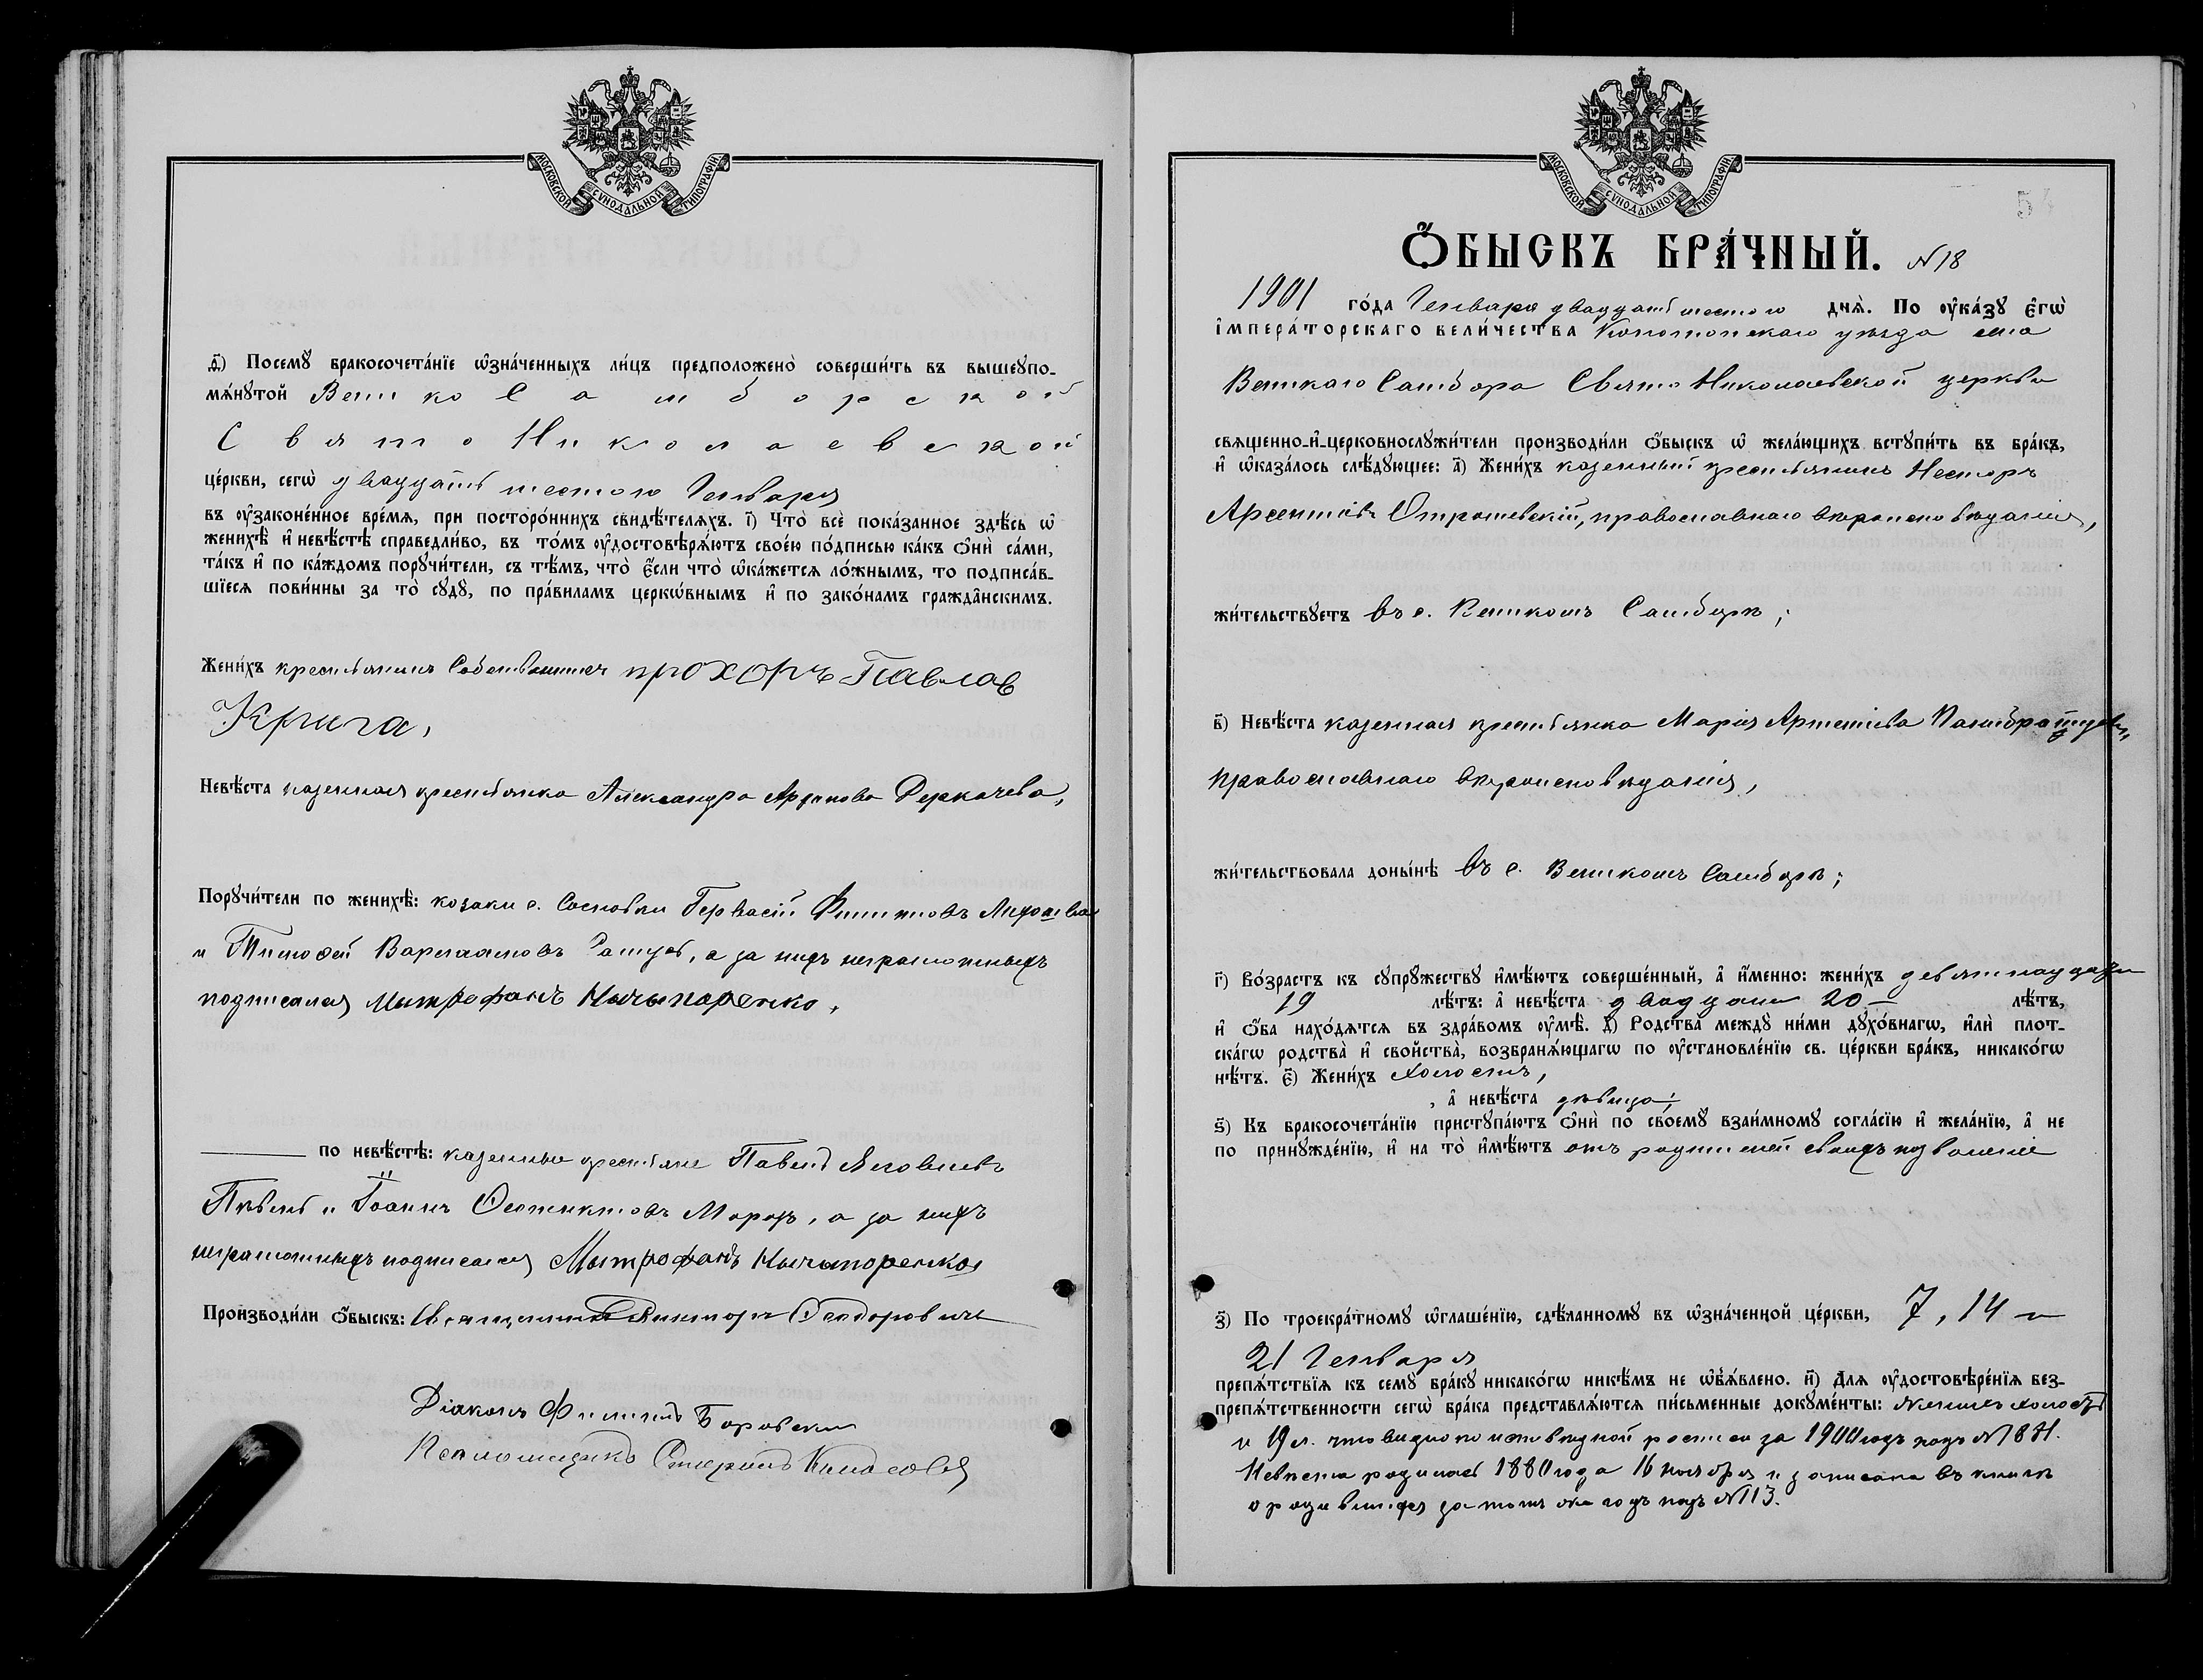 МОСКОВСКОЙ СѴНОДАЛЬНОЙ ТИПОГРАФІИ
д҃) Посемꙋ̀ бракосочета́нїе ѡ҆зна́ченныхъ ли́цъ предположено̀ соверши́ть въ вышеꙋпо-
мѧ́нꙋтой Велико Самборской
Свято Николаевской
це́ркви, сегѡ̀ двадцать шестого Генваря
въ ѹ҆законе́нное вре́мѧ, при посторо́ннихъ свидѣ́телѧхъ. і҃) Что̀ всѐ пока́занное здѣ́сь ѡ҆
женихѣ̀ и҆ невѣ́стѣ справедли́во, въ то́мъ ѹ҆достовѣрѧ́ютъ свое́ю по́дписью ка́къ ѻ҆нѝ са́ми,
та́къ и҆ по ка́ждомъ порꙋчи́тели, съ тѣ́мъ, что̀ є҆́сли что̀ ѡ҆ка́жетсѧ ло́жнымъ, то подписа́в-
шїесѧ пови́нны за то̀ сꙋдꙋ̀, по пра́виламъ церкѡ́внымъ и҆ по зако́намъ гражда́нскимъ.
Жени́хъ крестьянинъ Собственникъ прохоръ Павлов
Крига,
Невѣ́ста казенная крестьянка Александра Деркачева,
Порꙋчи́тели по женихѣ̀: козаки с. Сосновки Гервасій Филиповъ
и Тимофей Варлаамовъ, а за нихъ неграмотныхъ
подписался Мытрофанъ Нычыпоренко.
по невѣ́стѣ: казенные крестьяне Павелъ Яковлевъ
и Іоаннъ Морозъ, а за нихъ
неграмотныхъ подписался Мытрофанъ Нычыпоренко
Производи́ли ѻ҆́быскъ: Священникъ Викторъ Ѳеодоровичъ
Діаконъ Филиппъ Боровскій
Псаломщикъ
МОСКОВСКОЙ СѴНОДАЛЬНОЙ ТИПОГРАФІИ
54
Ѻ҆́БЫСКЪ БРА́ЧНЫЙ. №18
1901 го́да Генваря двадцать шестого днѧ̀. По ѹ҆ка́зꙋ є҆гѡ̀
і҆мпера́торскаго вели́чества Конотопскаго уѣзда села
Великаго Самбора Свято Николаевской церкви
свѧщенно-и҆-церковнослꙋжи́тели производи́ли ѻ҆́быскъ ѡ҆ жела́ющихъ встꙋпи́ть въ бра́къ,
и҆ ѡ҆каза́лось слѣ́дꙋющее: а҃) Жени́хъ казенный крестьянинъ Несторъ
Арсентіевъ Отрошевскій, православнаго вѣроисповѣданія,
жи́тельствꙋетъ въ с. Великомъ Самборѣ;
в҃) Невѣ́ста казенная крестьянка Марія Артеміева
православнаго вѣроисповѣданія,
жи́тельствовала доны́нѣ въ с. Великомъ Самборѣ;
г҃) Во́зрастъ къ сꙋпрꙋ́жествꙋ и҆мѣ́ютъ соверше́нный, а҆ и҆́менно: жени́хъ девятнадцати
19 лѣ́тъ: а҆ невѣ́ста двадцати 20 – лѣ́тъ,
и҆ ѻ҆́ба нахо́дѧтсѧ въ здра́вомъ ѹ҆мѣ̀. д҃) Родства̀ междꙋ̀ ни́ми дꙋхо́внагѡ, и҆лѝ плот-
ска́гѡ родства̀ и҆ свойства̀, возбранѧ́ющагѡ по ѹ҆становле́нїю св. це́ркви бра́къ, никако́гѡ
нѣ́тъ. є҃) Жени́хъ холостъ,
, а҆ невѣ́ста дѣвица;
ѕ҃) Къ бракосочета́нїю пристꙋпа́ютъ ѻ҆нѝ по своемꙋ̀ взаи́мномꙋ согла́сїю и҆ жела́нїю, а҆ не
по принꙋжде́нїю, и҆ на то̀ и҆мѣ́ютъ отъ родителей своихъ позволеніе
з҃) По троекра́тномꙋ ѡ҆глаше́нїю, сдѣ́ланномꙋ въ ѡ҆зна́ченной це́ркви, 7, 14 и
21 Генваря
препѧ́тствїѧ къ семꙋ̀ бра́кꙋ никако́гѡ никѣ́мъ не ѡ҆бъѧ́влено. и҃) Длѧ ѹ҆достовѣре́нїѧ без-
препѧ́тственности сегѡ̀ бра́ка представлѧ́ютсѧ пи́сьменные докꙋме́нты: Женихъ холостъ
и 19 л. что видно по исповѣдной росписи за 1900 годъ подъ №
Невѣста родилась 1880 года 16 ноября и записана въ книгѣ
о родившихся за тотъ же годъ подъ №113.